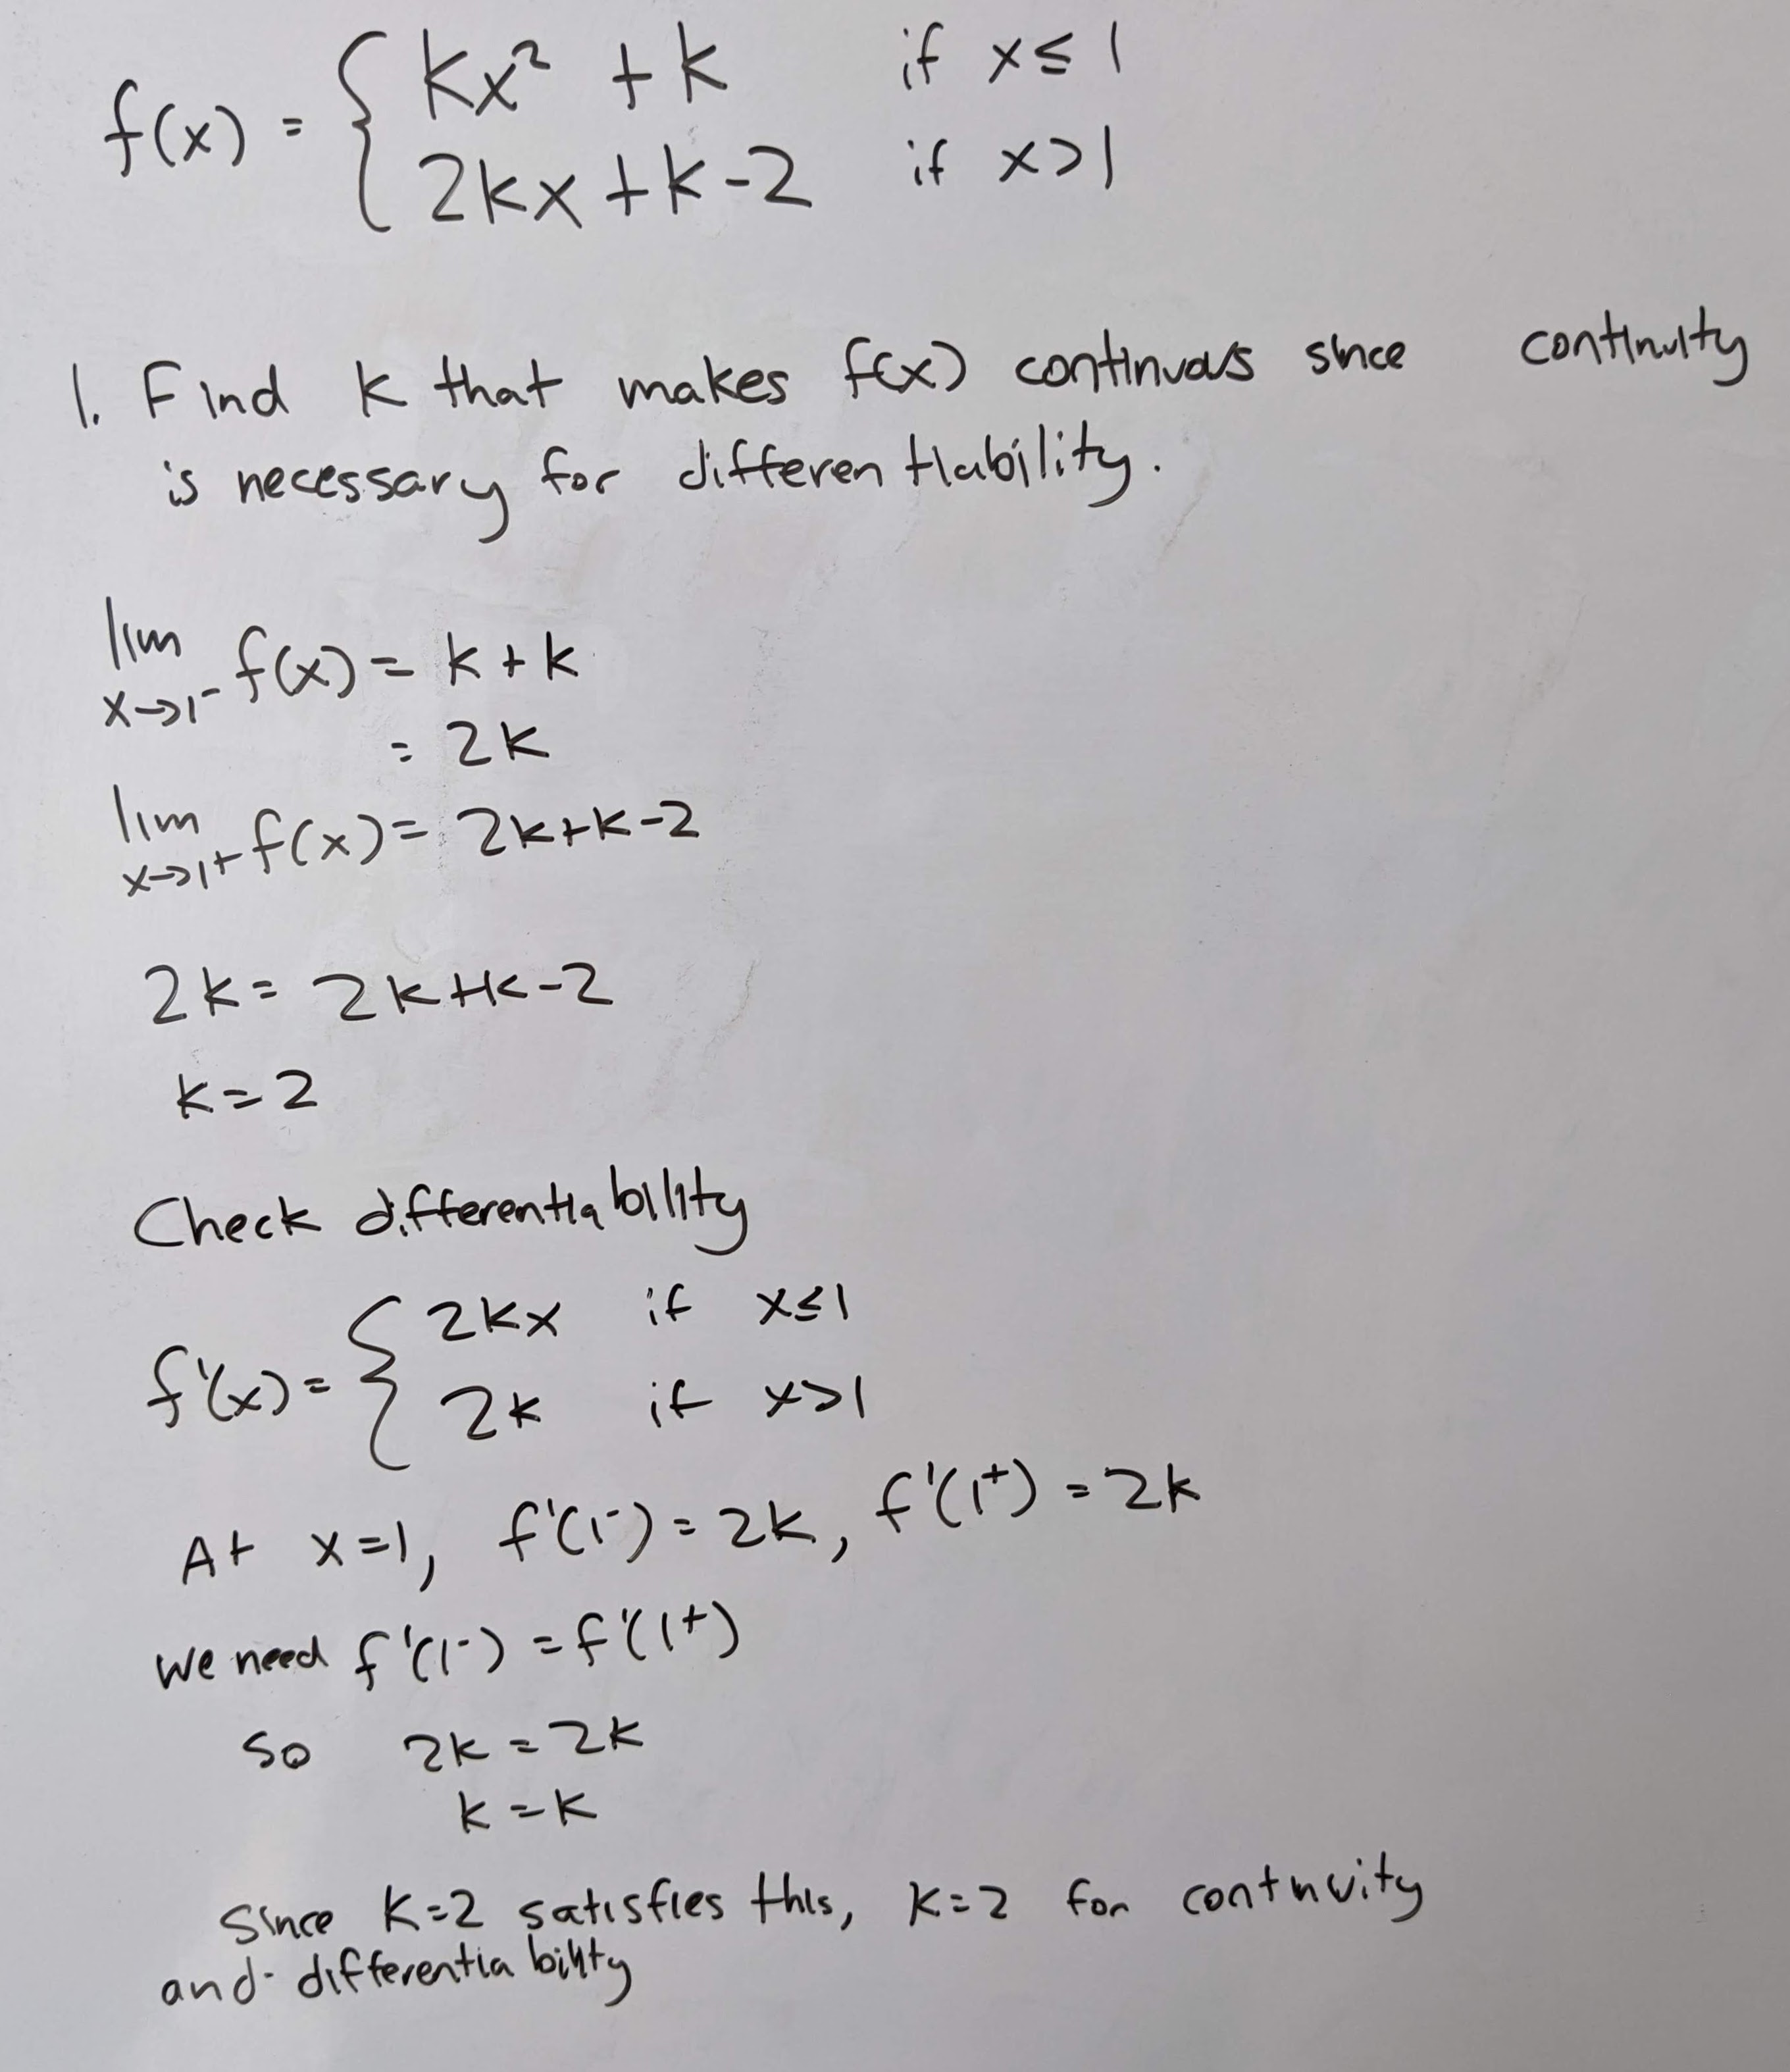 f(x) = { kx² + k if x ≤ 1
2kx + k - 2 if x > 1
1. Find k that makes f(x) continuous since continuity
is necessary for differentiability.
lim x→1⁻ f(x) = k + k
= 2k
lim x→1⁺ f(x) = 2k + k - 2
2k = 2k + k - 2
k = 2
Check differentiability
f'(x) = { 2kx if x ≤ 1
2k if x > 1
At x = 1, f'(1⁻) = 2k, f'(1⁺) = 2k
we need f'(1⁻) = f'(1⁺)
so 2k = 2k
k = k
Since k = 2 satisfies this, k = 2 for continuity
and differentiability